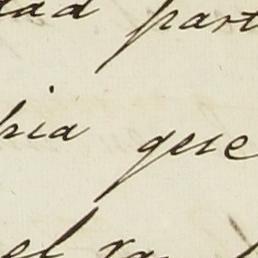 dad part
hia que
el ra